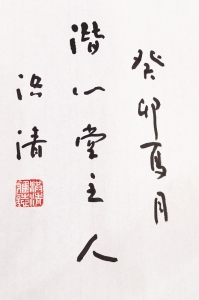 癸卯夏月
潜心堂主人
清